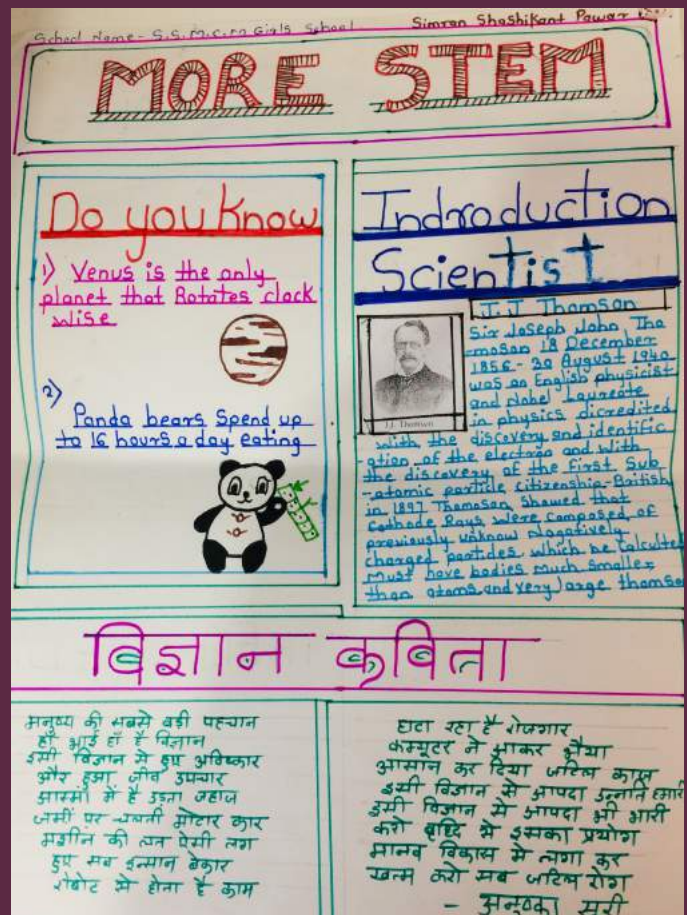 School Name - S.S.M.C.M Girls School
Simran Shashikant Pawar
MORE STEM
Do you Know
1) Venus is the only
planet that Rotates clock
wise
2)
Panda bears Spend up
to 16 hours a day eating
Indroduction
Scientist
J. J Thomson
Sir Joseph John Tho
-moson 18 December
1856 - 30 August 1940
was an English physicist
and Nobel Laureate
in physics dicredited
J.J. Thomson
with the discovery and identific
-ation of the electron and with
the discovery of the first Sub
-atomic particle citizenship-British
in 1897 Thomoson Showed that
Cathode Rays were composed of
previously unknow Nagatively
charged partides which he Calculted
must have bodies much smaller
than atoms and very large thomso
विज्ञान कविता
मनुष्य की सबसे बड़ी पहचान
हाँ भाई हाँ है विज्ञान
इसी विज्ञान से हुए अविष्कार
और हुआ जीव उपचार
आसमां में है उड़ता जहाज
जमीं पर चलती मोटार कार
मशीन की लत ऐसी लग
हुए सब इन्सान बेकार
रोबोट से होता है काम
घटा रहा है रोजगार
कम्प्यूटर ने आकर भैया
आसान कर दिया जटिल काज
इसी विज्ञान से आपदा उन्नति हमारी
इसी विज्ञान से आपदा भी भारी
करो बृध्दि से इसका प्रयोग
मानव विकास में लगा कर
खत्म करो सब जटिल रोग
- अनुष्का सूरी